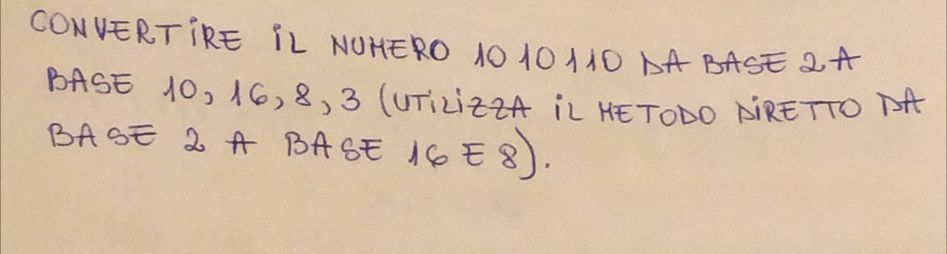 CONVERTIRE IL NUMERO 1010110 DA BASE 2 A
BASE 10, 16, 8, 3 (UTILIZZA IL METODO DIRETTO DA
BASE 2 A BASE 16 E 8).